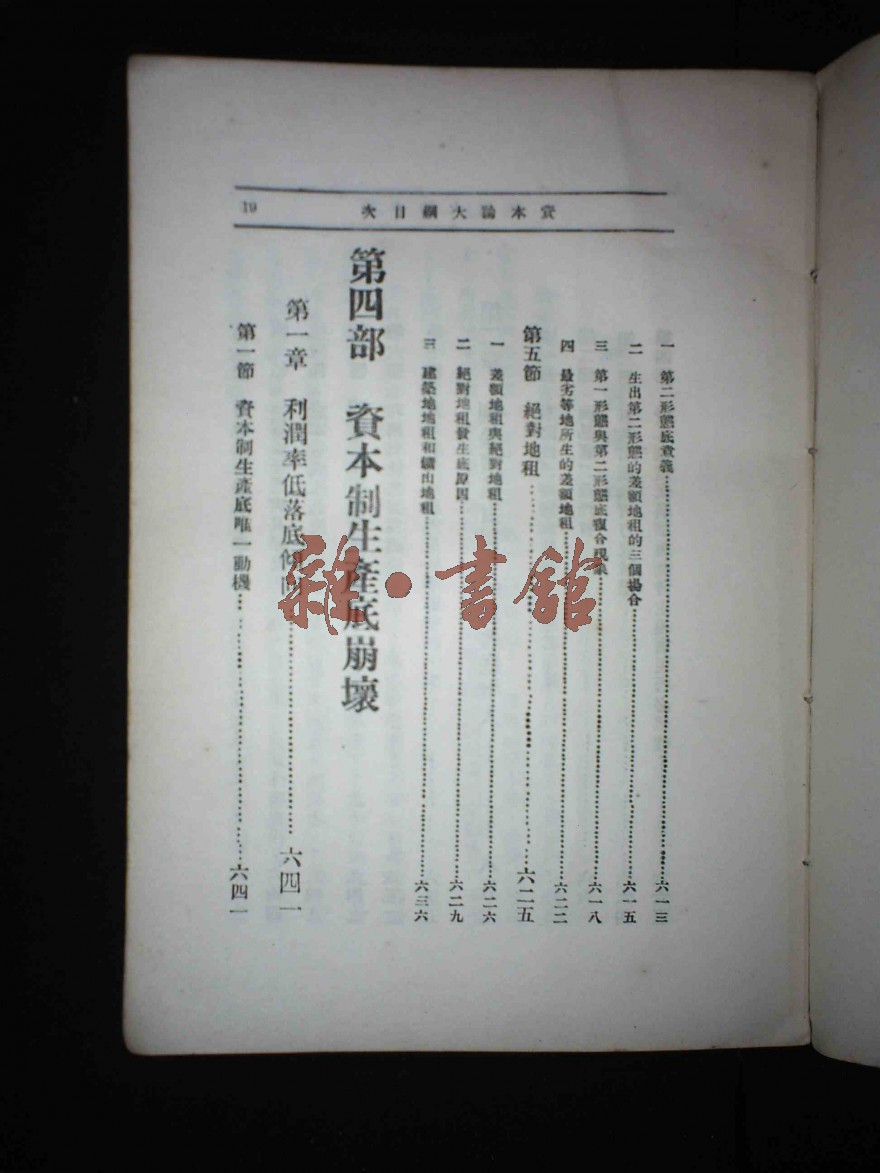 資本論大綱目次
19
一 第二形態底意義……………………六一三
二 生出第二形態的差額地租的三個場合……………………六一五
三 第一形態與第二形態底複合現象……………………六一八
四 最劣等地所生的差額地租……………………六二二
第五節 絕對地租……………………六二五
一 差額地租與絕對地租……………………六二六
二 絕對地租發生底原因……………………六二九
三 建築地地租和鑛山地租……………………六三六
第四部 資本制生產底崩壞
第一章 利潤率低落底傾向……………………六四一
第一節 資本制生產底唯一動機……………………六四一
雜·書館